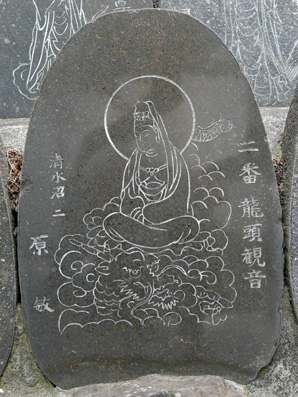 二番龍頭觀音
清水沼二
原敏